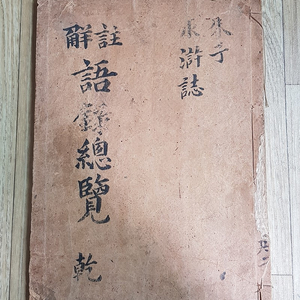 朱子
水滸誌
註觧
語錄總覽 乾